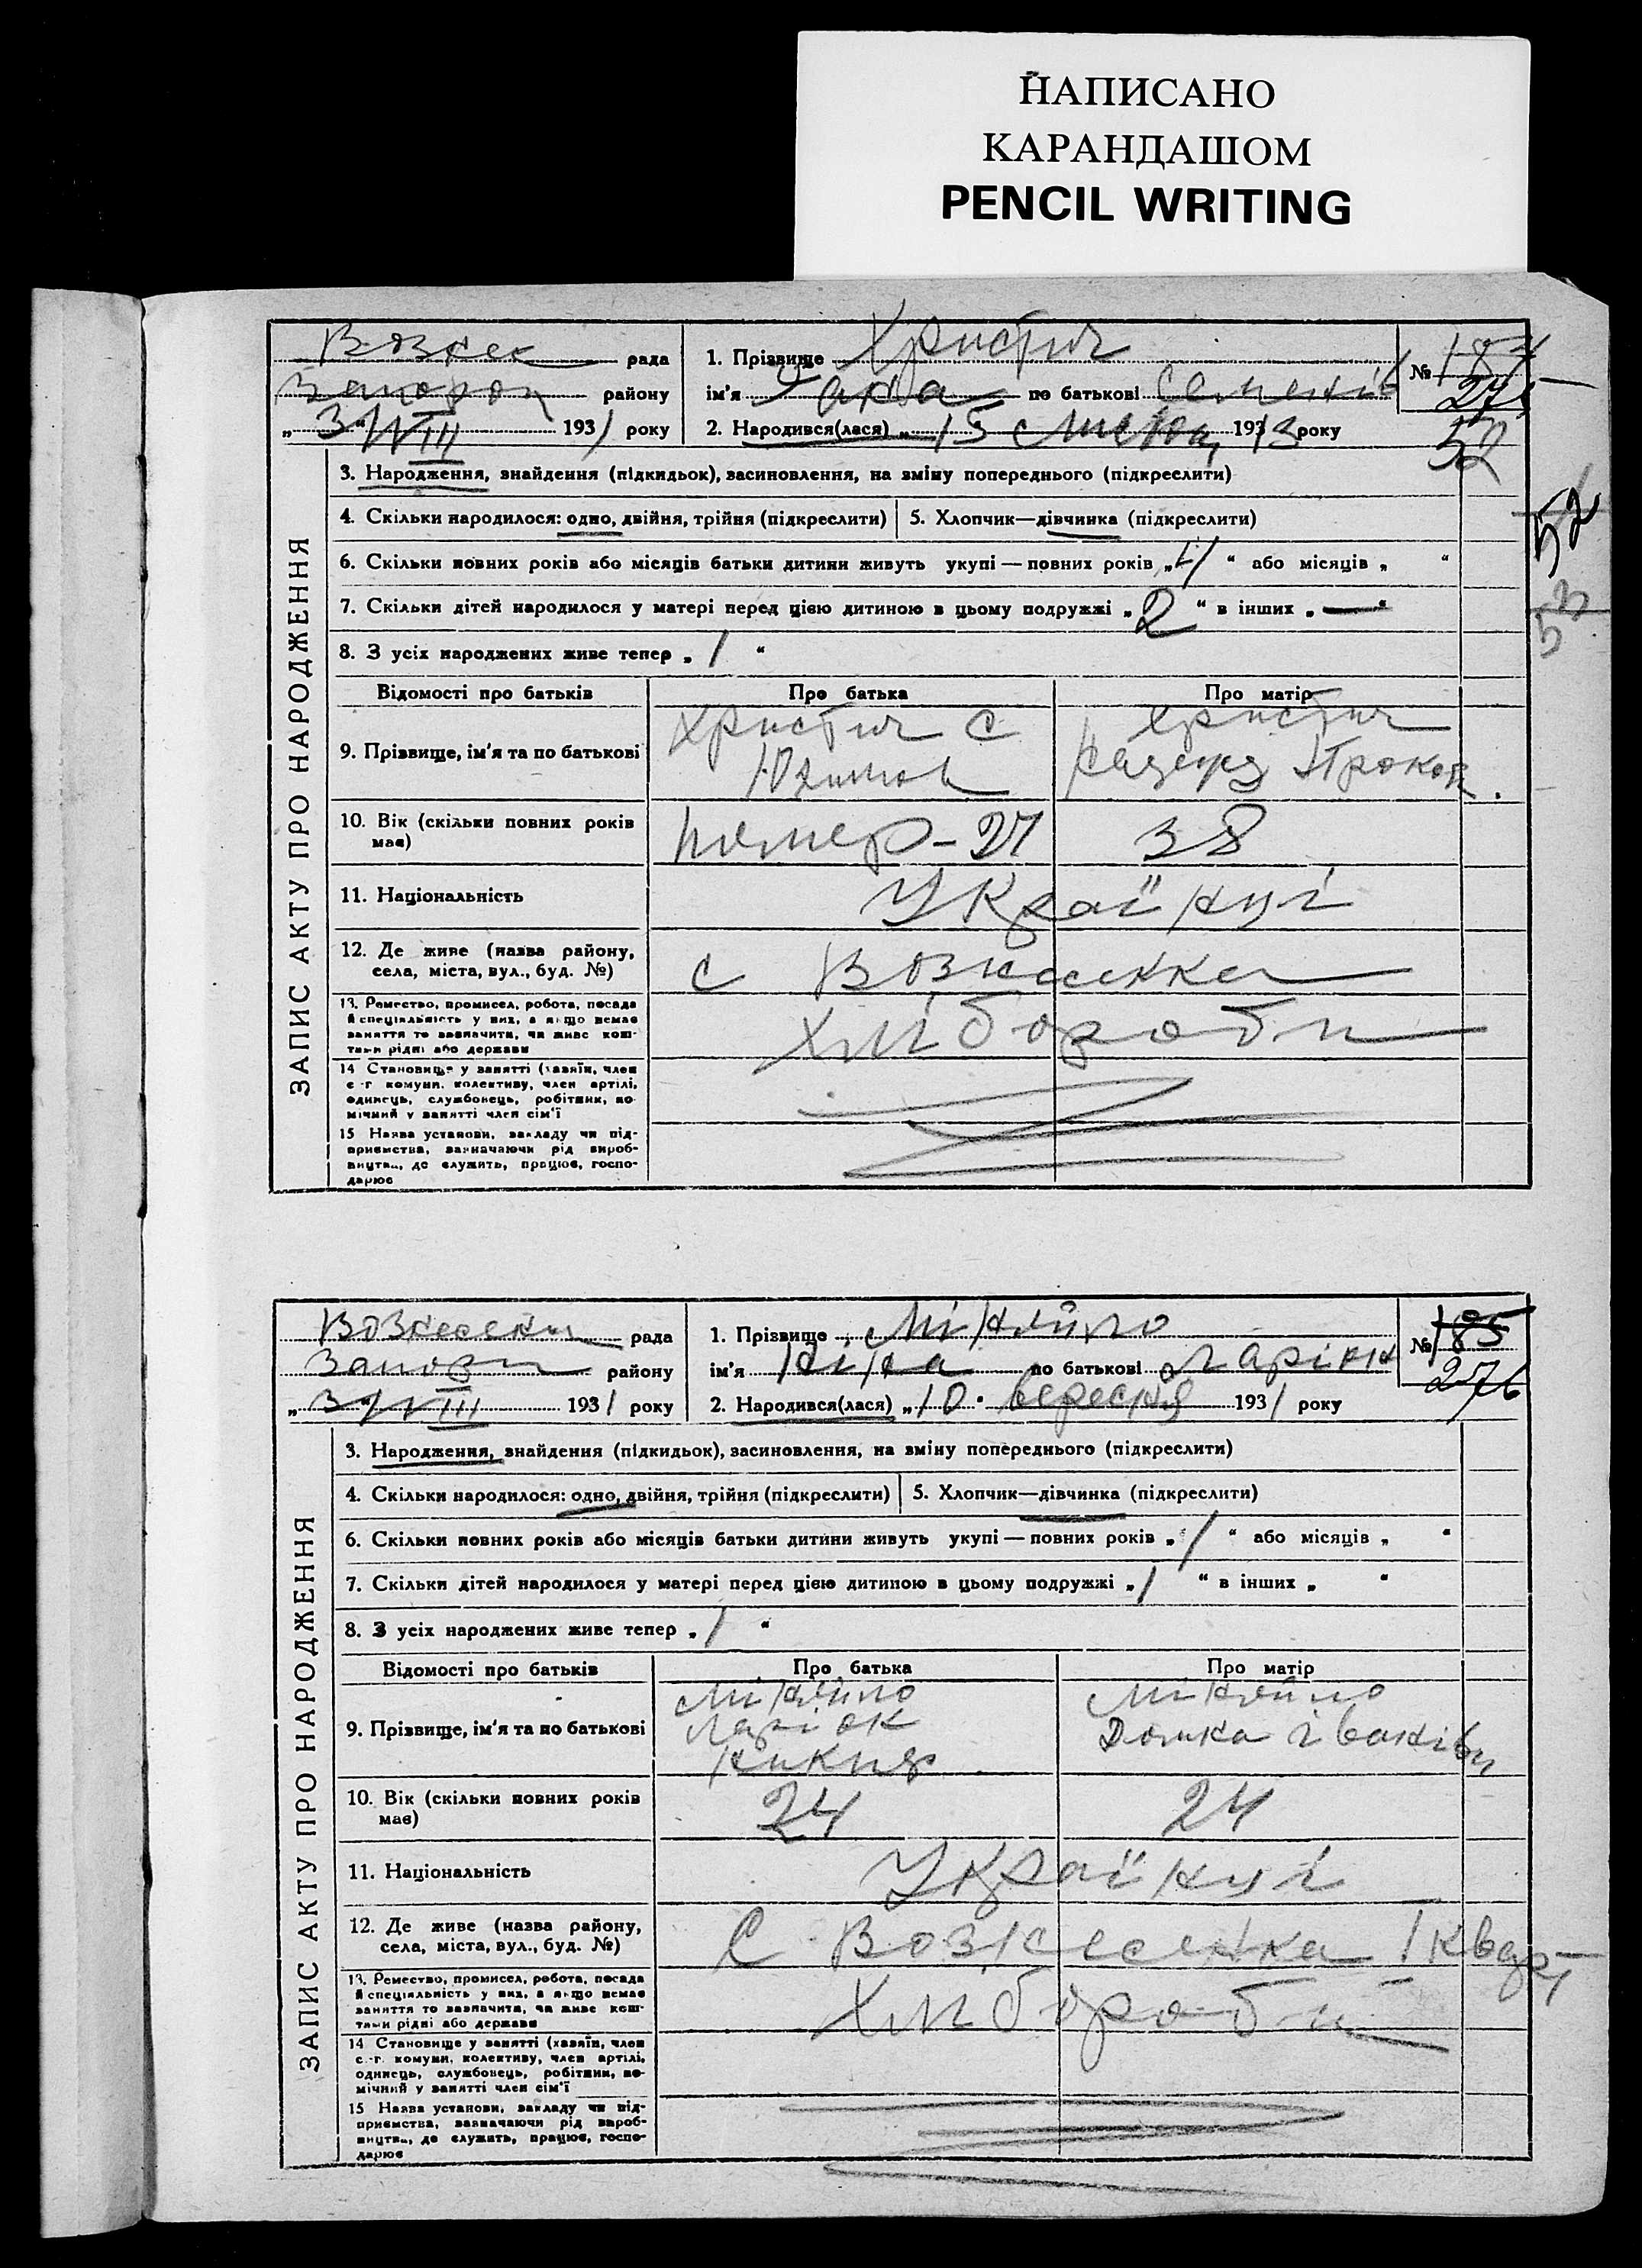 НАПИСАНО
КАРАНДАШОМ
PENCIL WRITING
рада
району
193 1 року
1. Прізвище Христич
ім'я по батькові Семенів
2. Народився(лася) „ 15 листоп, 1913 року
№ 184
52
52
3. Народження, знайдення (підкидьок), засиновлення, на зміну попереднього (підкреслити)
4. Скільки народилося: одно, двійня, трійня (підкреслити)
5. Хлопчик—дівчинка (підкреслити)
6. Скільки повних років або місяців батьки дитини живуть укупі — повних років „ “ або місяців „ “
7. Скільки дітей народилося у матері перед цією дитиною в цьому подружжі „ 2 “ в інших „ — “
8. З усіх народжених живе тепер „ 1 “
Відомості про батьків
Про батька
Про матір
9. Прізвище, ім'я та по батькові
Христич С
Христич
Проков.
10. Вік (скільки повних років має)
помер - 27
38
11. Національність
Українці
12. Де живе (назва району, села, міста, вул., буд. №)
с Вознесенка
13. Ремество, промисел, робота, посада й спеціяльність у них, а якщо немає заняття то зазначити, чи живе коштами рідні або держави
Хлібороби
14 Становище у занятті (хазяїн, член с.-г. комуни, колективу, член артілі, одинець, службовець, робітник, помічний у занятті член сім'ї
15 Назва установи, закладу чи підприємства, зазначаючи рід виробництва, де служить, працює, господарює
ЗАПИС АКТУ ПРО НАРОДЖЕННЯ
Вознесенки рада
району
193 1 року
1. Прізвище Міняйло
ім'я Ніна по батькові Ларіон
2. Народився(лася) „ 10 “ вересня 193 1 року
№ 185
276
3. Народження, знайдення (підкидьок), засиновлення, на зміну попереднього (підкреслити)
4. Скільки народилося: одно, двійня, трійня (підкреслити)
5. Хлопчик—дівчинка (підкреслити)
6. Скільки повних років або місяців батьки дитини живуть укупі — повних років „ 1 “ або місяців „ “
7. Скільки дітей народилося у матері перед цією дитиною в цьому подружжі „ 1 “ в інших „ “
8. З усіх народжених живе тепер „ 1 “
Відомості про батьків
Про батька
Про матір
9. Прізвище, ім'я та по батькові
Міняйло
Ларіон
Микиф
Міняйло
Домка Іванівн
10. Вік (скільки повних років має)
24
24
11. Національність
Українці
12. Де живе (назва району, села, міста, вул., буд. №)
С Вознесенка 1 кварт
13. Ремество, промисел, робота, посада й спеціяльність у них, а якщо немає заняття то зазначити, чи живе коштами рідні або держави
Хлібороби
14 Становище у занятті (хазяїн, член с.-г. комуни, колективу, член артілі, одинець, службовець, робітник, помічний у занятті член сім'ї
15 Назва установи, закладу чи підприємства, зазначаючи рід виробництва, де служить, працює, господарює
ЗАПИС АКТУ ПРО НАРОДЖЕННЯ